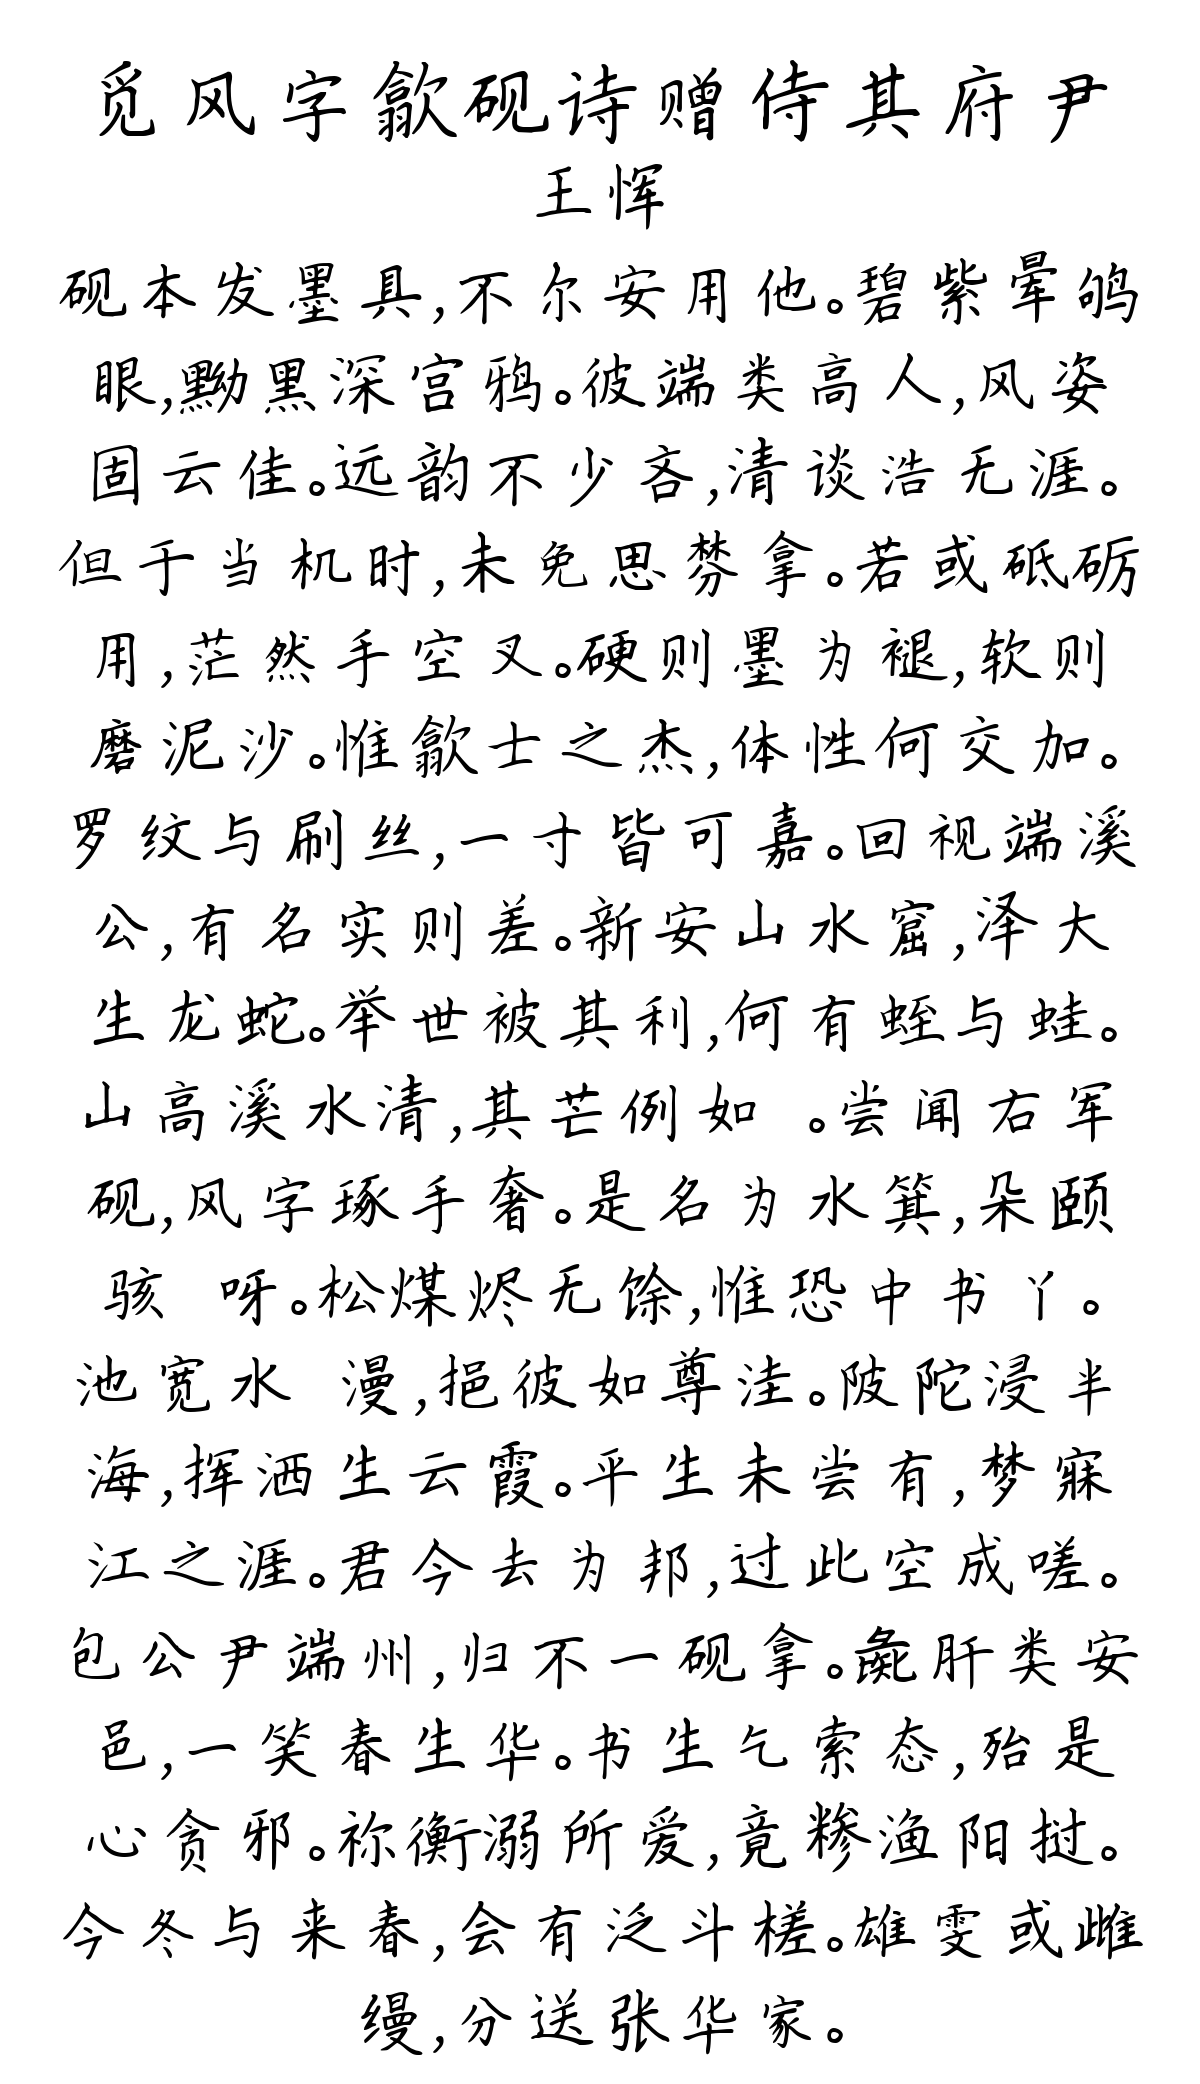 觅风字歙砚诗赠侍其府尹
王恽
砚本发墨具,不尔安用他。碧紫晕鸲
眼,黝黑深宫鸦。彼端类高人,风姿
固云佳。远韵不少吝,清谈浩无涯。
但于当机时,未免思棼拿。若或砥砺
用,茫然手空叉。硬则墨为褪,软则
磨泥沙。惟歙士之杰,体性何交加。
罗纹与刷丝,一寸皆可嘉。回视端溪
公,有名实则差。新安山水窟,泽大
生龙蛇。举世被其利,何有蛭与蛙。
山高溪水清,其芒例如 。尝闻右军
砚,风字琢手奢。是名为水箕,朵颐
骇 呀。松煤烬无馀,惟恐中书丫。
池宽水 漫,挹彼如尊洼。陂陀浸半
海,挥洒生云霞。平生未尝有,梦寐
江之涯。君今去为邦,过此空成嗟。
包公尹端州,归不一砚拿。彘肝类安
邑,一笑春生华。书生乞索态,殆是
心贪邪。祢衡溺所爱,竟糁渔阳挝。
今冬与来春,会有泛斗槎。雄雯或雌
缦,分送张华家。